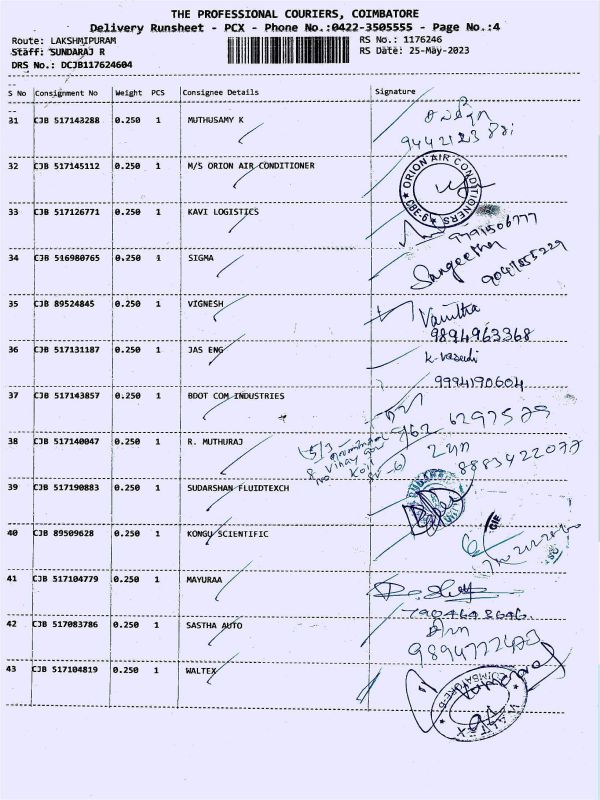 THE PROFESSIONAL COURIERS, COIMBATORE
Delivery Runsheet - PCX - Phone No.:0422-3505555 - Page No.:4
Route: LAKSHMIPURAM RS No.: 1176246
Staff: SUNDARAJ R RS Date: 25-May-2023
DRS No.: DCJB117624604
S No Consignment No Weight PCS Consignee Details Signature
31 CJB 517143288 0.250 1 MUTHUSAMY K
32 CJB 517145112 0.250 1 M/S ORION AIR CONDITIONER
ORION AIR CONDITIONERS CBE-6
33 CJB 517126771 0.250 1 KAVI LOGISTICS
34 CJB 516980765 0.250 1 SIGMA Sangeetha
35 CJB 89524845 0.250 1 VIGNESH Vanitha
9894963368
36 CJB 517131187 0.250 1 JAS ENG
9994190604
37 CJB 517143857 0.250 1 BDOT COM INDUSTRIES
38 CJB 517140047 0.250 1 R. MUTHURAJ
39 CJB 517190883 0.250 1 SUDARSHAN FLUIDTEXCH
40 CJB 89509628 0.250 1 KONGU SCIENTIFIC
41 CJB 517104779 0.250 1 MAYURAA
42 CJB 517083786 0.250 1 SASTHA AUTO
43 CJB 517104819 0.250 1 WALTEX
WALTEX COIMBATORE-6